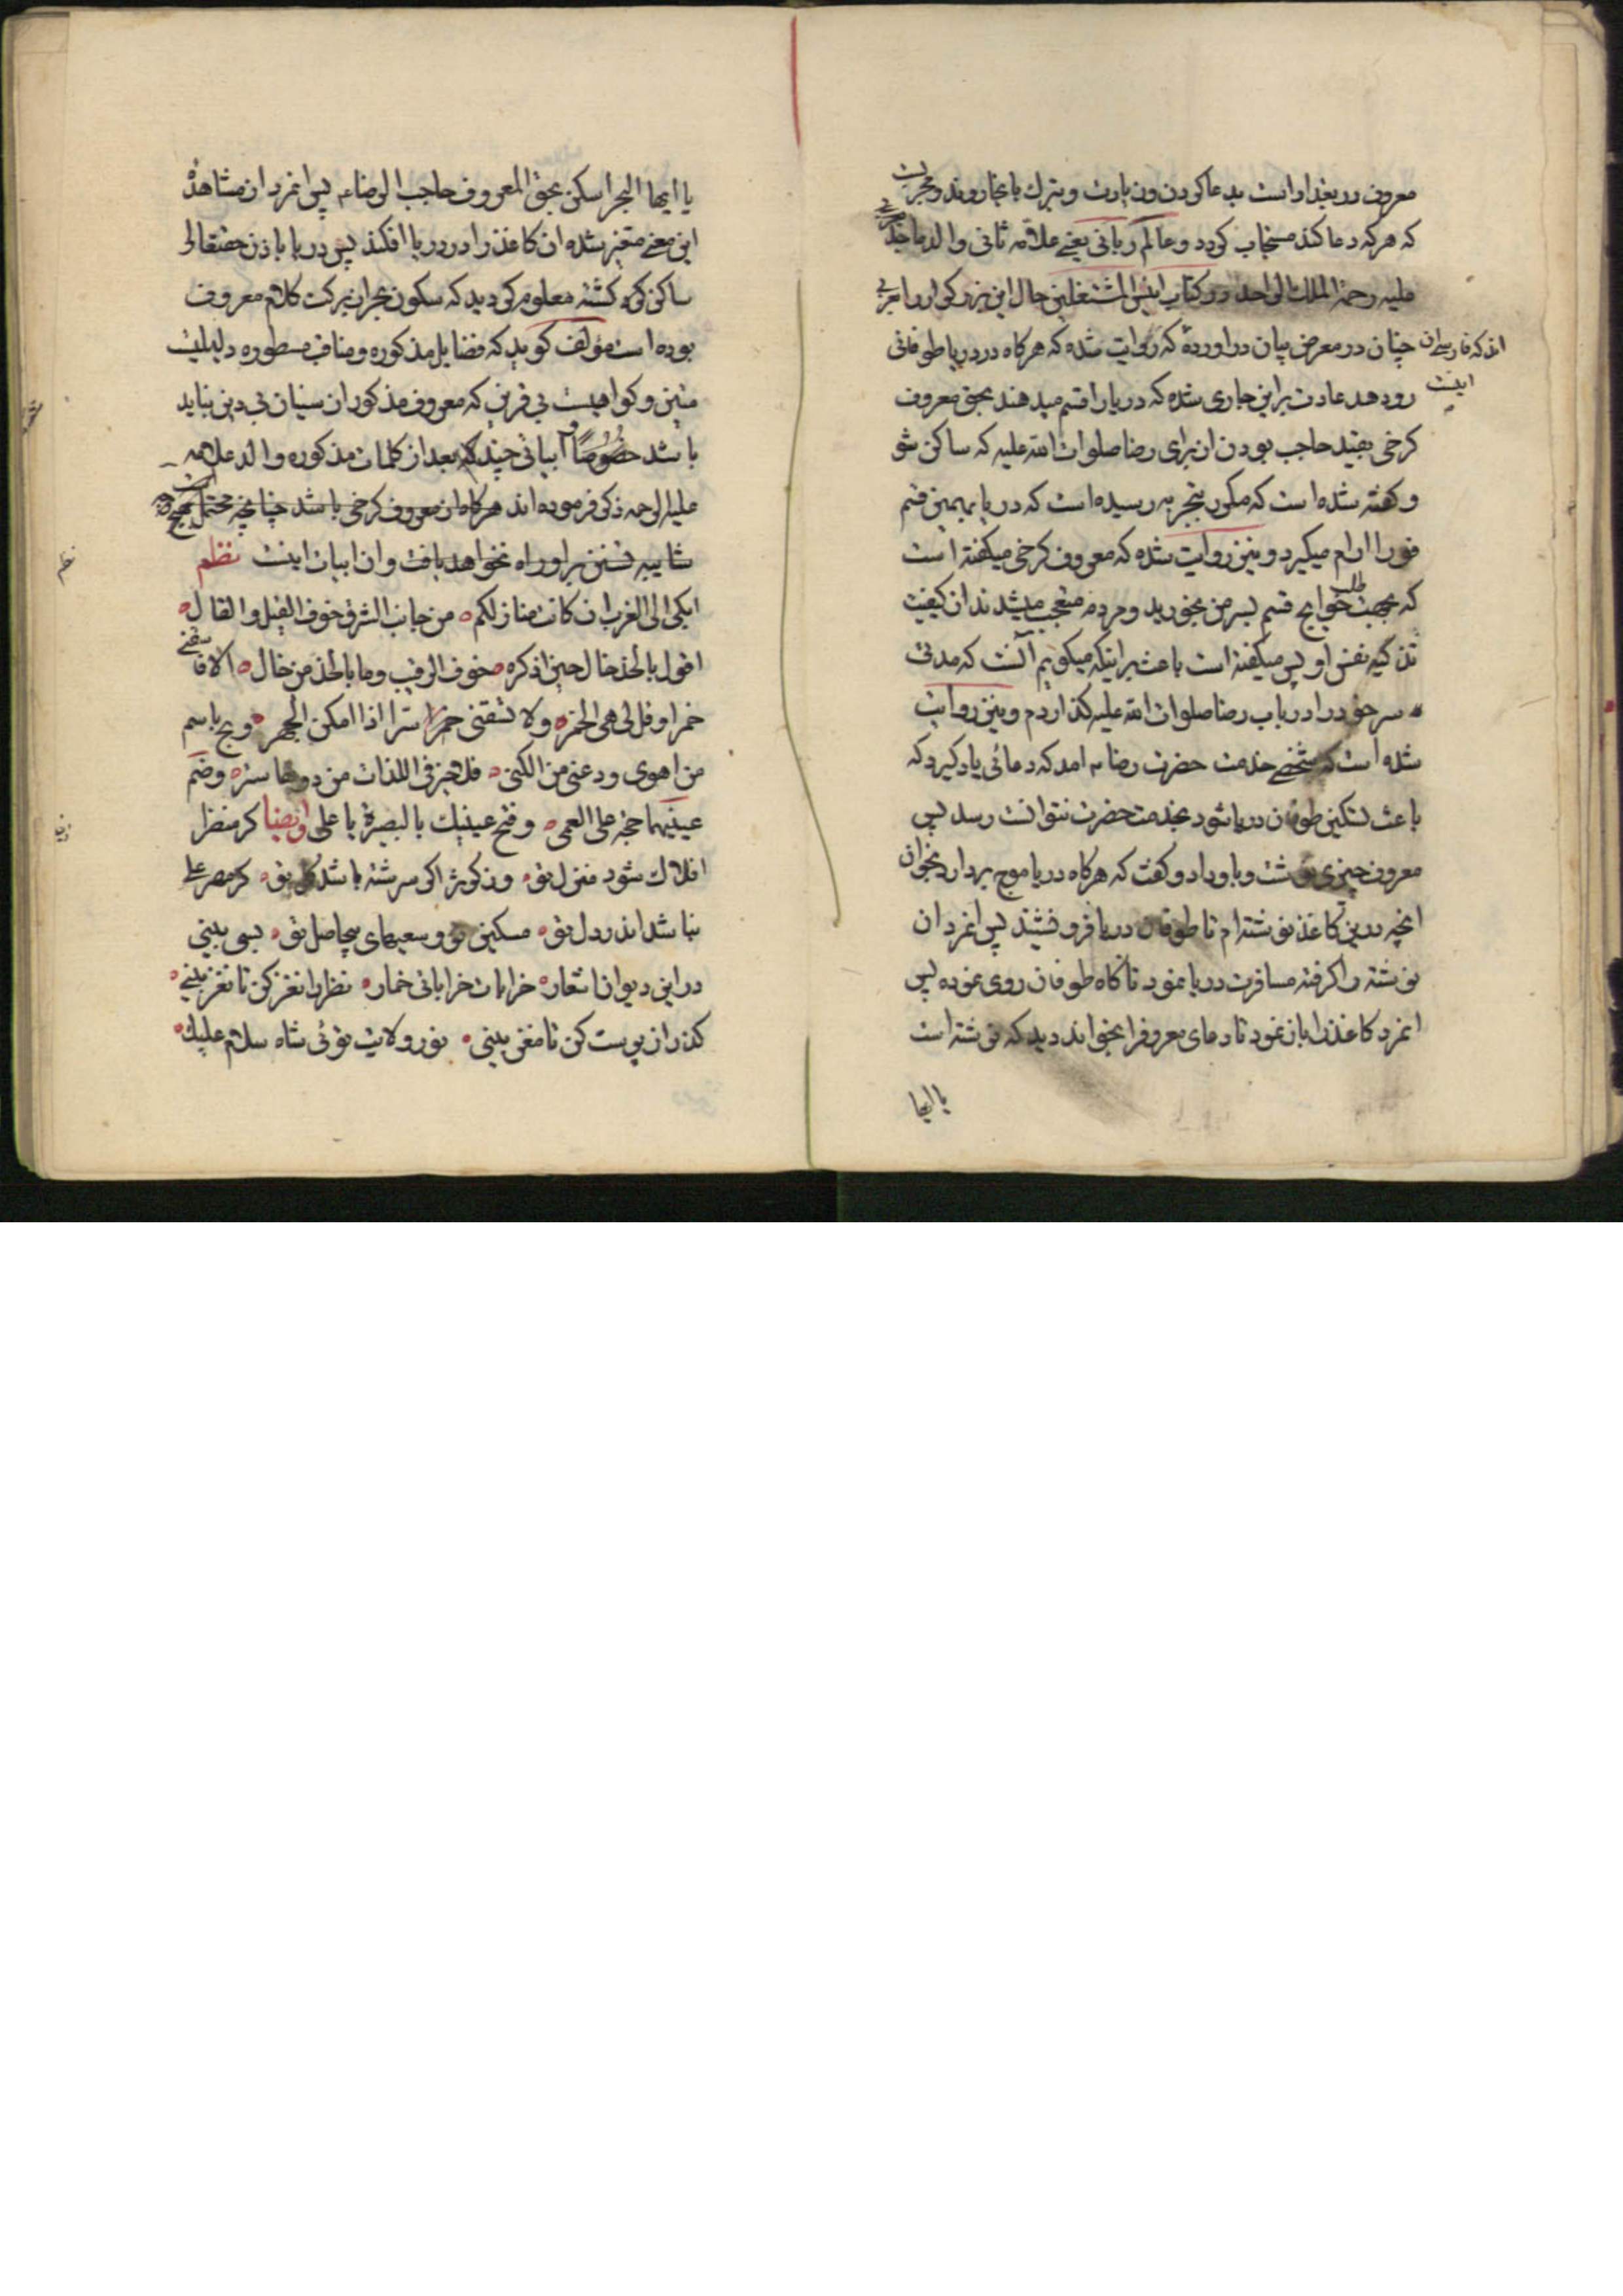 معروف در بغداد است بدعا كردن و زيارت و تبرك بانجا روند و مجربست
كه هركه دعا كند مستجاب كردد و عالم ربانی يعنے علامه ثانی والد ماجد
عليه رحمة الملك الواحد در كتاب انيس المشتغلين حال اين بزركوار را بعربی
چنان در معرض بيان در اورده كه روايت شده كه هركاه در دريا طوفانی
اند كه فارسی ان
اينست
رو دهد عادت بر اين جاری شده كه دريا را قسم ميدهند بحق معروف
كرخی بقيد حاجب بودن از برای رضا صلوات الله عليه كه ساكن شو
و كفته شده است كه مكرر بتجربه رسيده است كه دريا بهمين قسم
فورا ارام ميكيرد و نيز روايت شده كه معروف كرخی ميكفته است
كه بجهت طلب حوايج قسم بسر من بخوريد و مردم متعجب ميشدند از كيفيت
تذكيه نفس او پس ميكفته است باعث بر اينكه ميكويم آنست كه مدتی
سر خود را در باب رضا صلوات الله عليه كذاردم و نيز روايت
شده است كه شخصے خدمت حضرت رضا امد كه دعائی ياد كيرد كه
باعث تسكين طوفان دريا شود بخدمت حضرت نتوانست رسد پس
معروف چيزی نوشت و باو داد و كفت كه هركاه دريا موج بردارد بخوان
انچه در ين كاغذ نوشته ام تا طوفان دريا فرو نشيند پس انمرد ان
نوشته را كرفته مسافرت دريا نمود تا كاه طوفان روی نموده پس
انمرد كاغذ را باز نمود تا دعای معروف را بخواند ديد كه نوشته است
يا ايها
يا ايها البحر اسكن بحق المعروف حاجب الرضا پس انمرد از مشاهدهٔ
اين معنے متغير شده ان كاغذ را در دريا افكند پس دريا باذن حقتعالی
ساكن كرد كشته معلوم كرديد كه سكون بحر از بركت كلام معروف
بوده است مؤلف كويد كه فضايل مذكوره و مناقب مسطوره دليليست
متين و كواهيست بی قرين كه معروف مذكور از سنيان بی دين نبايد
باشد خصوصًا ابياتی چند كه بعد از كلمات مذكوره والد علامه
عليه الرحمه ذكر فرموده اند هركاه از معروف كرخی باشد چنانچه محتمل
شايبه تسنن بر او راه نخواهد يافت و ان ابيات اينست نظم
ابكی الی الغرب ان كانت منازلكم من جانب الشرق خوف القيل و القال
اقول بالخد خال حين اذكره خوف الرقيب و ما بالخد من خال الا فاسقنے
خمرا و قل لی هی الخمر و لا تسقنی سرا اذا امكن الجهر و بح باسم
من اهوی و دعنی من الكنی فلا خير فی اللذات من دونها ستر و ضم
عينيها حجة علی العمی و فتح عينيك بالبصرة يا علی و ايضا كر منظر
افلاك شود منزل تو وز كوثر اكر سرشته باشد كل تو كر مهر علی
نباشد اندر دل تو مسكين تو و سعيهای بيحاصل تو بسی بينی
در اين ديوان خرابات خراباتی خمار نظر را نغز كن تا نغز بينے
كذر از پوست كن تا مغز بينی نور ولايت توئی شاه سلام عليك
نظم